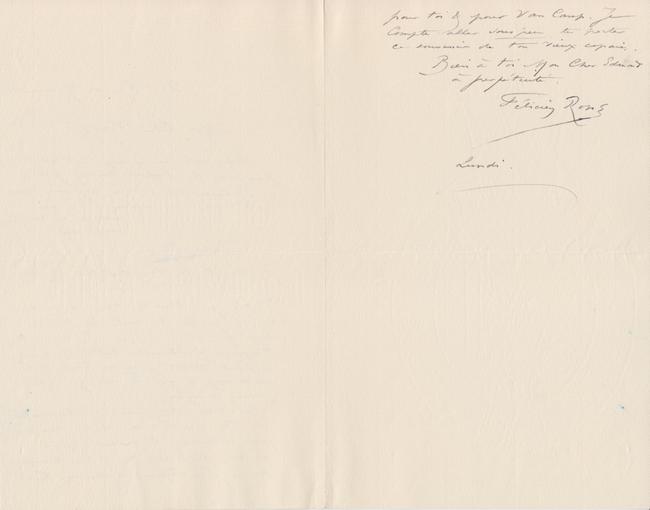 pour toi & pour Van Camp. Je
Compte aller sous peu te porter
ce souvenir de ton vieux copain.
Bien à toi Mon Cher Edmond
à perpétuité.
Félicien Rops
Lundi.